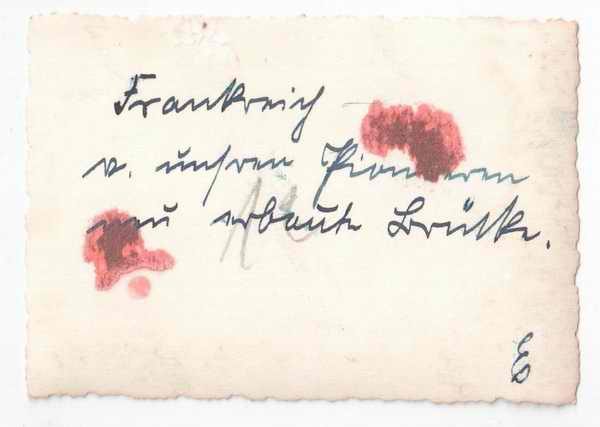 Frankreich
v. unsren Pionieren
neu erbaute Brücke.